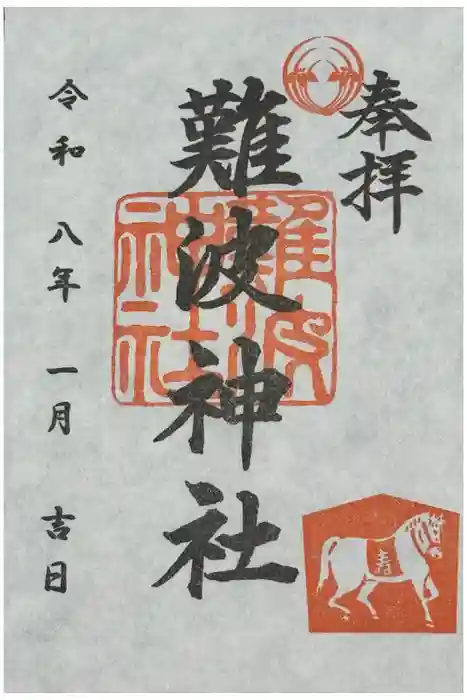 奉拝
難波神社
難波神社
壽
令和 八年 一月 吉日